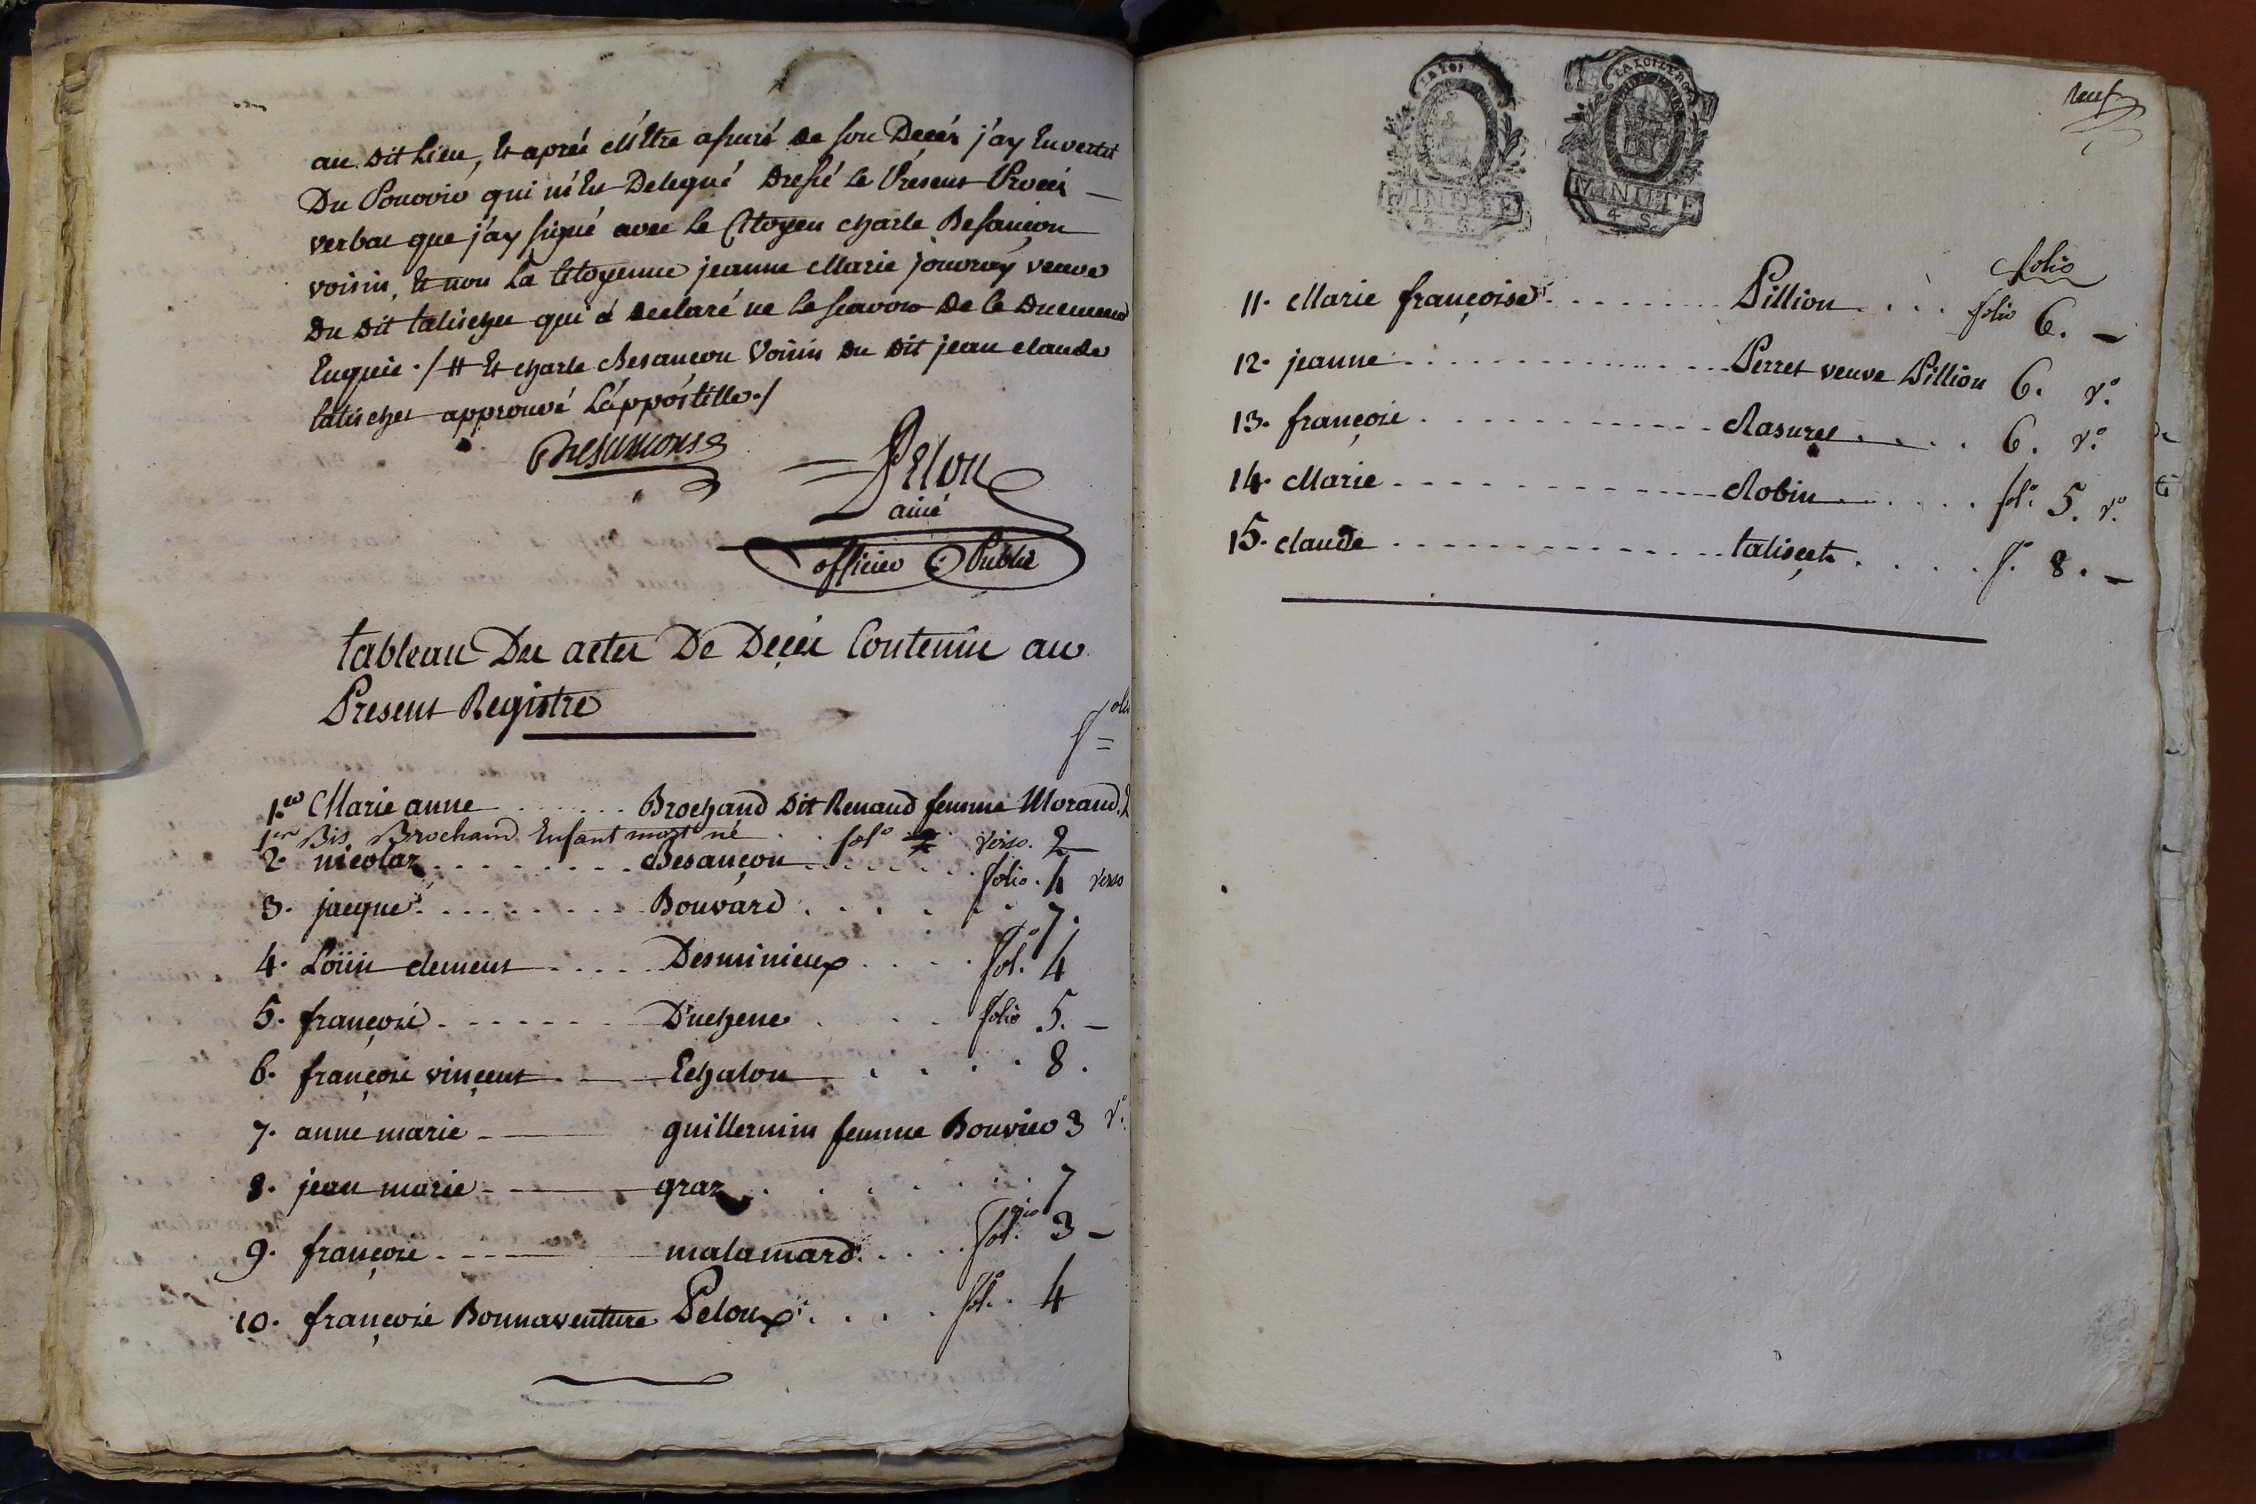 au dit Lieu, Et aprés M'être assuré de son Decés j'ay En vertu
Du Pouvoir qui m'Est Delegué Dressé le Présent Procés
verbal que j'ay signé avec le Citoyen charle Besançon
voisin, Et non La Citoyenne jeanne Marie jouvray veuve
Du dit talischet qui a declaré ne le scavoir De ce Duement
Enquie ./ # Et charle Besançon Voisin Du dit jean claude
talischet approuvé L'appostille./
Besancons
Pelou
ainé
officier Public
tableau Des actes De Deçés Contenûe au
Present Registre
folio
1.er Marie anne ...... Brochand Dit Renaud femme Morand. 2
1er Bis Brochand Enfant mort né .. fol° verso. 2
2. nicolaz ........ Besançon ........ folio. 4 verso
3. jacque ........ Bouvard ...... 7.
4. Loüis clement .... Desminieux ..... fol. 4
5. françois ...... Duchene .... folio 5. —
6. françois vinçent — Echalon .... 8.
7. anne marie — guillermin femme Bouvier 3 v.°
8. jean marie — graz ........ 7
9. françois — malamard ..... fol. 3 —
10. françois Bonnaventure Peloux ..... fol. 4
LA LOI
LA LOI LE ROI
MINUTE
4. S.
MINUTE
4. S.
neuf
folio
11. Marie françoise ....... Pillion .... folio 6. —
12. jeanne ............ Perret veuve Pillion 6. v.°
13. françois ............ Rasurel ..... 6. v.°
14. Marie ............ Robin ...... fol. 5. v.°
15. claude ............ talisçet ..... f.° 8. —